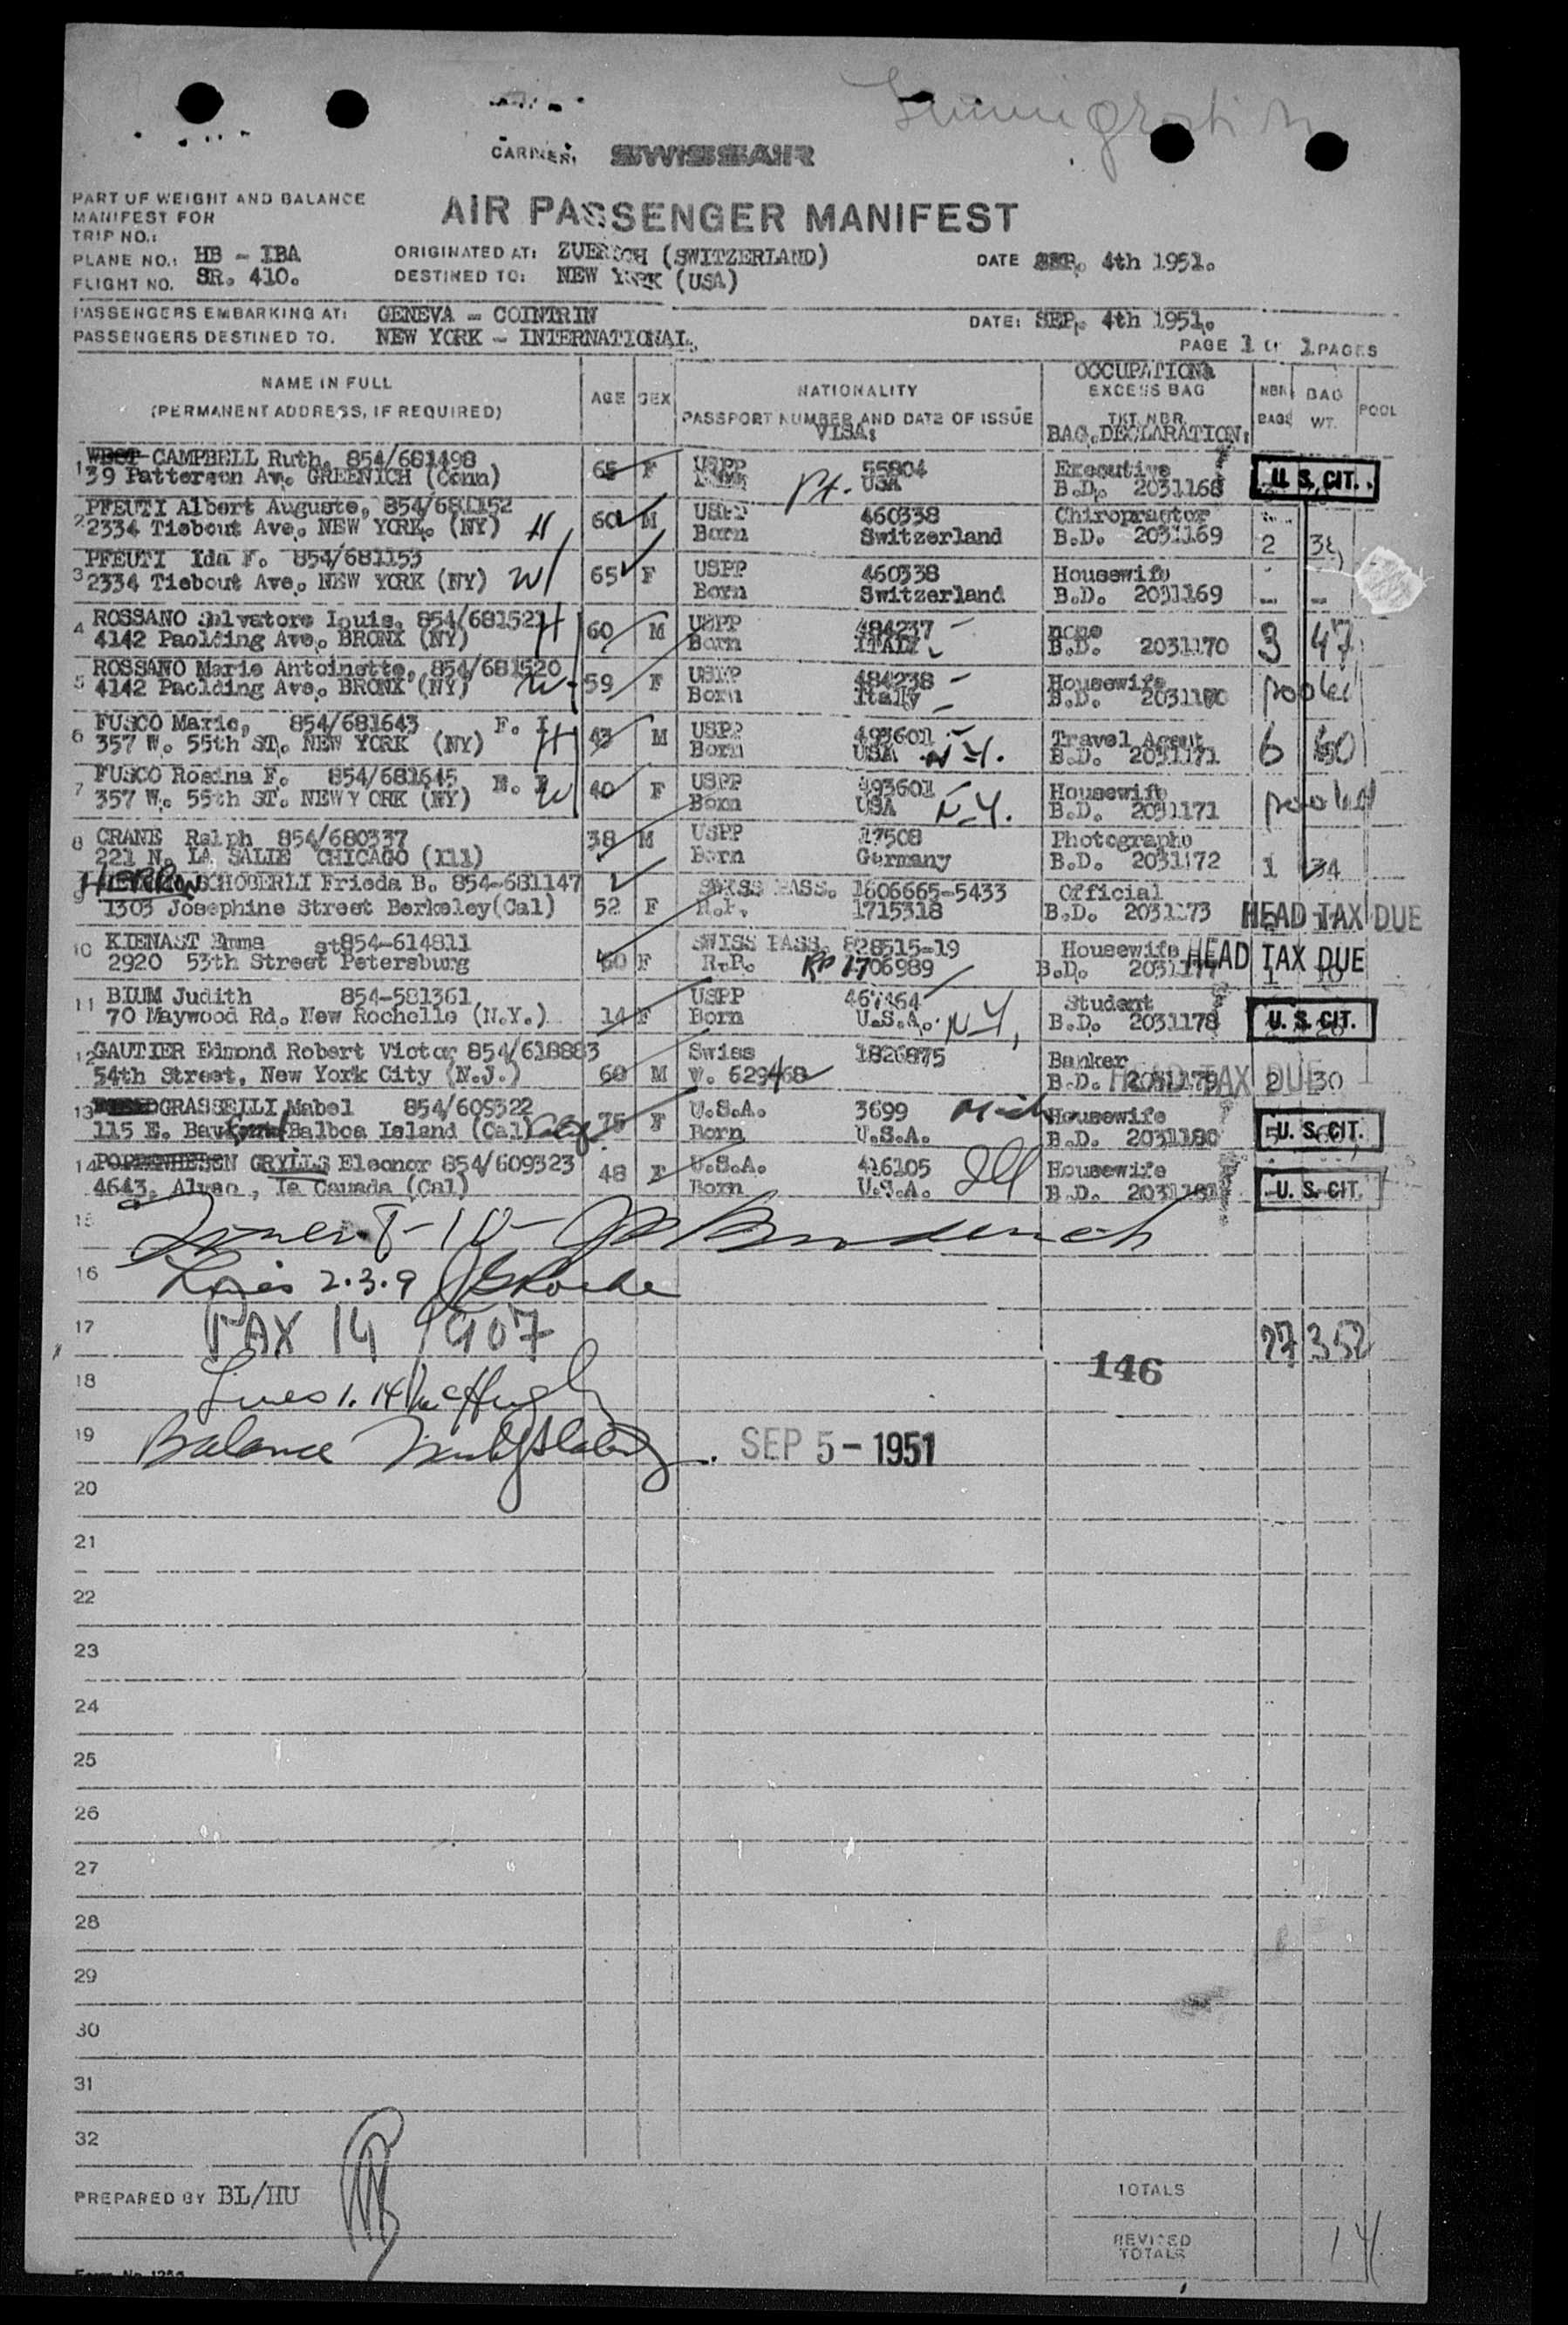 Immigration
CARRIER: SWISSAIR
PART OF WEIGHT AND BALANCE
MANIFEST FOR
TRIP NO.:
AIR PASSENGER MANIFEST
PLANE NO.: HB - IBA ORIGINATED AT: ZUERICH (SWITZERLAND) DATE SEP. 4th 1951.
FLIGHT NO. SR. 410. DESTINED TO: NEW YORK (USA)
PASSENGERS EMBARKING AT: GENEVA - COINTRIN DATE: SEP. 4th 1951.
PASSENGERS DESTINED TO. NEW YORK - INTERNATIONAL.
PAGE 1 OF 1 PAGES
NAME IN FULL AGE SEX NATIONALITY OCCUPATION: EXCESS BAG NBR BAG POOL
(PERMANENT ADDRESS, IF REQUIRED) PASSPORT NUMBER AND DATE OF ISSUE TKT NBR BAGS WT.
VISA: BAG.DECLARATION:
1 WEST CAMPBELL Ruth, 854/681498 65 F USPP 55804 Executive U. S. CIT.
39 Patterson Av. GREENICH (Conn) USA B.D. 2031168
2 PFEUTI Albert Auguste, 854/681152 60 M USPP 460338 Chiropractor
2334 Tiebout Ave. NEW YORK. (NY) H Born Switzerland B.D. 2031169 2 38
3 PFEUTI Ida F. 854/681153 65 F USPP 460338 Housewife
2334 Tiebout Ave. NEW YORK (NY) W Born Switzerland B.D. 2031169 - -
4 ROSSANO Salvatore Louis, 854/681521 H 60 M USPP 484237 none
4142 Paolding Ave. BRONX (NY) Born ITALY B.D. 2031170 3 47
5 ROSSANO Marie Antoinette, 854/681520 59 F USPP 484238 Housewife
4142 Paolding Ave. BRONX (NY) W Born Italy B.D. 2031170 pooled
6 FUSCO Mario, 854/681643 F. I. 43 M USPP 493601 Travel Agent
357 W. 55th ST. NEW YORK (NY) H Born USA N.Y. B.D. 2031171 6 60
7 FUSCO Rosina F. 854/681645 40 F USPP 493601 Housewife
357 W. 55th ST. NEWY ORK (NY) W Born USA N.Y. B.D. 2031171 pooled
8 CRANE Ralph 854/680337 38 M USPP 17508 Photographe
221 N. LA SALLE CHICAGO (Ill) Born Germany B.D. 2031172 1 34
9 HERRON SCHOBERLI Frieda B. 854-681147 SWISS PASS. 1606665-5433 Official
1303 Josephine Street Berkeley(Cal) 52 F R.P. 1715318 B.D. 2031173 HEAD TAX DUE
10 KIENAST Emma 854-614811 SWISS PASS. 828515-19 Housewife HEAD TAX DUE
2920 53th Street st Petersburg 60 F R.P. RP 1706989 B.D. 2031177 1 10
11 BLUM Judith 854-581361 USPP 467464 Student
70 Maywood Rd. New Rochelle (N.Y.) 14 F Born U.S.A. N.Y. B.D. 2031178 U. S. CIT.
12 GAUTIER Edmond Robert Victor 854/618883 Swiss 1826875 Banker
54th Street, New York City (N.J.) 60 M V. 629468 B.D. 2031179 HEAD TAX DUE 2 30
13 GRASSELLI Mabel 854/609322 75 F U.S.A. 3699 Mich Housewife
115 E. Balboa Island (Cal) Born U.S.A. B.D. 2031180 U. S. CIT.
14 GRYLLS Eleonor 854/609323 48 F U.S.A. 416105 Ill Housewife
4643, Alveo, La Canada (Cal) Born U.S.A. B.D. 2031181 U. S. CIT.
15 8-10-
16 Lines 2.3.9
17 PAX 14 27 352
146
18 Lines 1. 14 McHugh
19 Balance SEP 5 - 1951
20
21
22
23
24
25
26
27
28
29
30
31
32
PREPARED BY BL/HU TOTALS
REVISED TOTALS 14